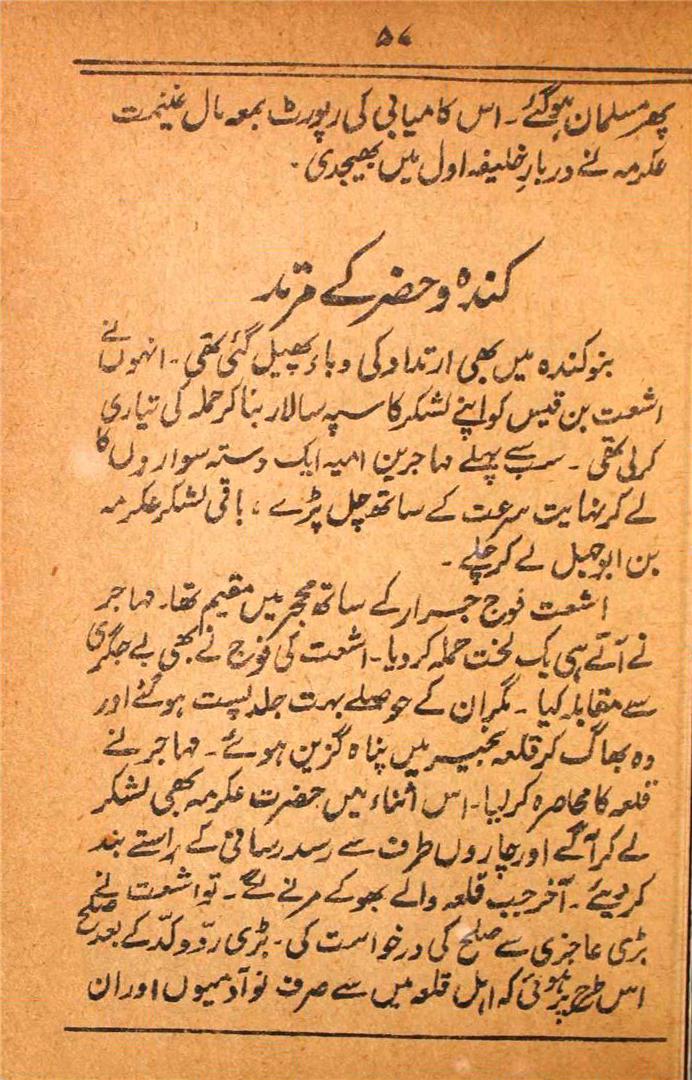 ۵۷
پھر مسلمان ہوگئے۔ اس کامیابی کی رپورٹ بمعہ مال غنیمت
عکرمہ نے دربارِ خلیفہ اول میں بھیجدی۔
کندہ و حضر کے مرتد
بنو کندہ میں بھی ارتداد کی وباء پھیل گئی تھی۔ انہوں نے
اشعت بن قیس کو اپنے لشکر کا سپہ سالار بنا کر حملہ کی تیاری
کرلی تھی۔ سب سے پہلے مہاجر بن امیہ ایک دستہ سواروں کا
لے کر نہایت سرعت کے ساتھ چل پڑے، باقی لشکر عکرمہ
بن ابوجہل لے کر چلے۔
اشعت فوج جرار کے ساتھ محجر میں مقیم تھا۔ مہاجر
نے آتے ہی یک لخت حملہ کردیا۔ اشعت کی فوج نے بھی بے جگری
سے مقابلہ کیا۔ مگر ان کے حوصلے بہت جلد پست ہوگئے اور
وہ بھاگ کر قلعہ بجیر میں پناہ گزین ہوئے۔ مہاجر نے
قلعہ کا محاصرہ کرلیا۔ اس اثناء میں حضرت عکرمہ بھی لشکر
لے کر آگے اور چاروں طرف سے رسد رسانی کے راستے بند
کردیئے۔ آخر جب قلعہ والے بھوکے مرنے لگے۔ تو اشعت نے
بڑی عاجزی سے صلح کی درخواست کی۔ بڑی ردّ و کدّ کے بعد صلح
اس طرح پر ہوئی کہ اہل قلعہ میں سے صرف نو آدمیوں اور ان